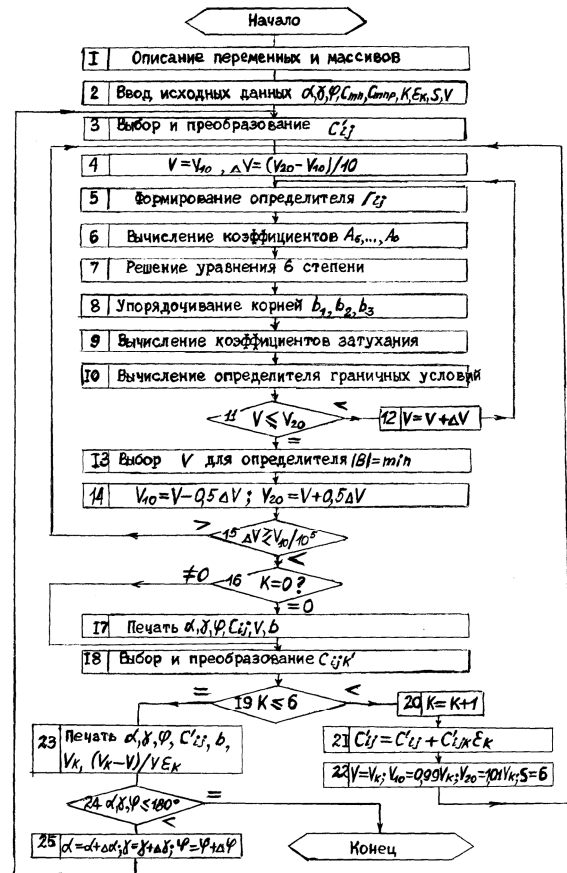 Начало
1 Описание переменных и массивов
2 Ввод исходных данных α,γ,φ,Cmn,Cmnp,K,Eк,S,V
3 Выбор и преобразование C'ij
4 V=V10 , ΔV=(V20-V10)/10
5 Формирование определителя Гij
6 Вычисление коэффициентов A6,...,A0
7 Решение уравнения 6 степени
8 Упорядочивание корней b1,b2,b3
9 Вычисление коэффициентов затухания
10 Вычисление определителя граничных условий
11 V⩽V20
<
12 V=V+ΔV
=
13 Выбор V для определителя |B|=min
14 V10=V-0,5ΔV; V20=V+0,5ΔV
>
15 ΔV≷V10/10⁵
<
≠0
16 K=0?
=0
17 Печать α,γ,φ,Cij,V,b
18 Выбор и преобразование Cijк'
=
19 K⩽6
<
20 K=K+1
21 C'ij=C'ij+C'ijкEк
22 V=Vк; V10=0,99Vк; V20=1,01Vк; S=6
23 Печать α,γ,φ, C'ij, b,
Vк, (Vк-V)/VEк
24 α,γ,φ⩽180°
=
<
25 α=α+Δα; γ=γ+Δγ; φ=φ+Δφ
Конец